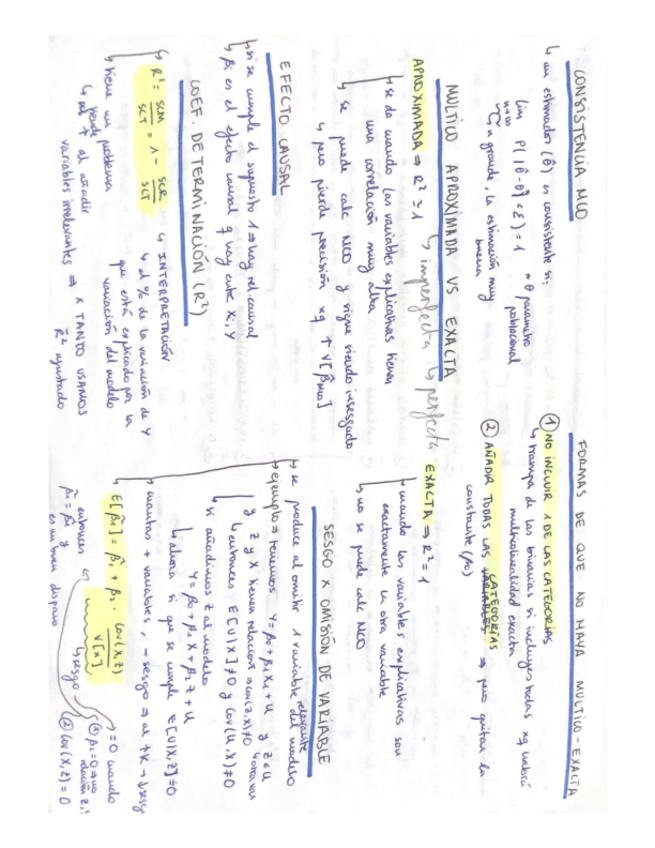 CONSISTENCIA MCO
↳ un estimador (θ̂) es consistente si:
lim P(|θ̂-θ| < ε) = 1 → θ parámetro
n→∞ poblacional
↳ n grande, la estimación muy
buena
MULTICO APROXIMADA VS EXACTA
↳ imperfecta ↳ perfecta
APROXIMADA ⇒ R² ≃ 1
↳ se da cuando las variables explicativas tienen
una correlación muy alta
↳ se puede calc MCO y sigue siendo insesgado
↳ pero pierde precisión xq ↑ V[β̂MCO]
EFECTO CAUSAL
↳ si se cumple el supuesto 1 ⇒ hay rel causal
↳ βi es el efecto causal q hay entre Xi, Y
COEF. DETERMINACIÓN (R²)
↳ R² = SCM/SCT = 1 - SCR/SCT
↳ INTERPRETACIÓN
↳ el % de la variación de Y
que está explicado por la
variación del modelo
↳ tiene un problema
↳ al + al añadir
variables irrelevantes ⇒ x TANTO USAMOS
R̄² ajustado
FORMAS DE QUE NO HAYA MULTICO-EXACTA
① NO INCLUIR 1 DE LAS CATEGORÍAS
↳ trampa de las binarias si incluyes todas xq habrá
multicolinealidad exacta
② AÑADIR TODAS LAS CATEGORÍAS ⇒ pero quitar la
constante (β0)
EXACTA ⇒ R² = 1
↳ cuando las variables explicativas son
exactamente la otra variable
↳ no se puede calc MCO
SESGO X OMISIÓN DE VARIABLE
↳ se produce al omitir 1 variable relevante del modelo
↳ ejemplo ⇒ tenemos Y = β0 + β1X1 + U y Z ∈ U
y Z y X tienen relación ⇒ cov(Z,X) ≠ 0
↳ entonces E[U|X] ≠ 0 y Cov(U,X) ≠ 0
↳ si añadimos Z al modelo
Y = β0 + β1X + β2Z + U
↳ ahora si que se cumple E[U|X,Z] = 0
↳ cuantas + variables, - sesgo ⇒ al +k → ↓ sesgo
↳ E[β̃1] = β1 + β2 · Cov(X,Z)/V[X]
↳ sesgo
→ = 0 cuando
① β2 = 0 ⇒ no
relación Z,Y
② Cov(X,Z) = 0
entonces
β̃1 = β̂1 y
es un buen disparo